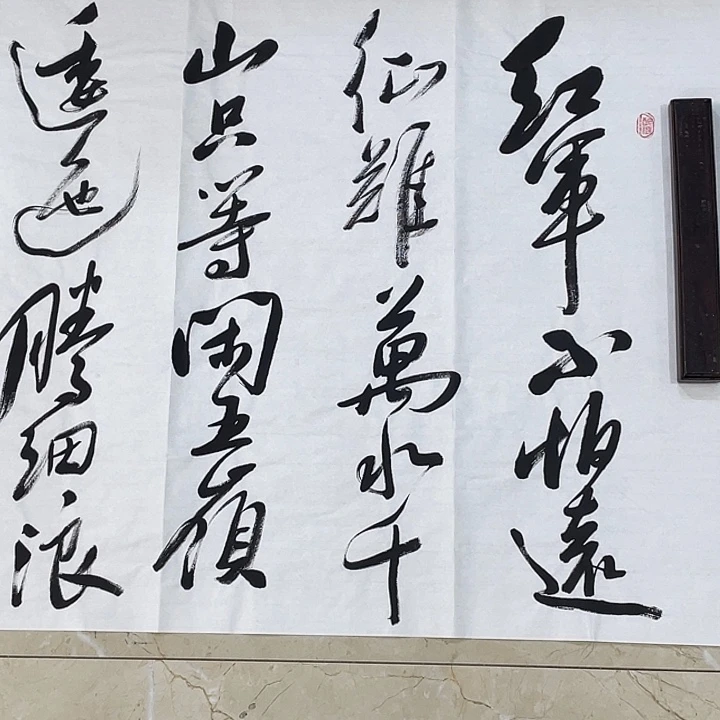 红軍不怕遠
征難萬水千
山只等閑五嶺
逶迤騰細浪